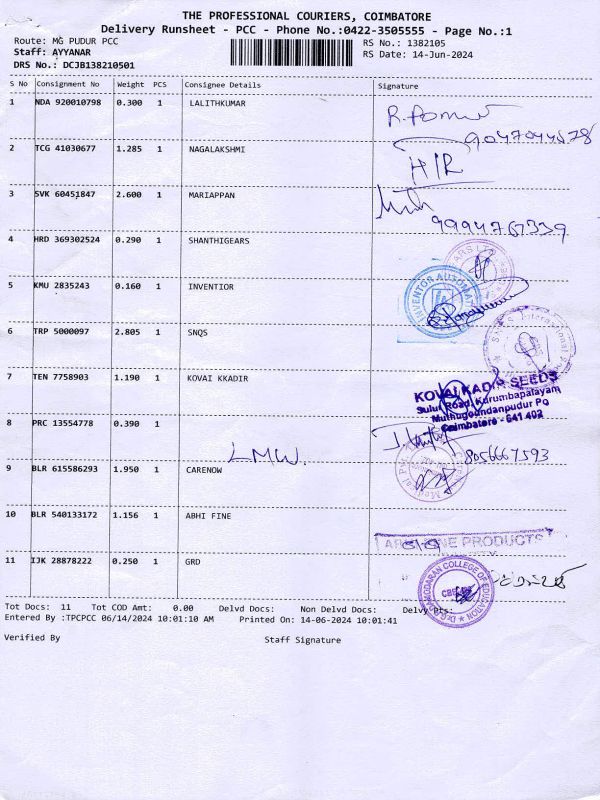 THE PROFESSIONAL COURIERS, COIMBATORE
Delivery Runsheet - PCC - Phone No.:0422-3505555 - Page No.:1
Route: MG PUDUR PCC
RS No.: 1382105
Staff: AYYANAR
RS Date: 14-Jun-2024
DRS No.: DCJB138210501
S No Consignment No Weight PCS Consignee Details Signature
1 NDA 920010798 0.300 1 LALITHKUMAR
9047044578
2 TCG 41030677 1.285 1 NAGALAKSHMI
H/R
3 SVK 60451847 2.600 1 MARIAPPAN
9994767339
4 HRD 369302524 0.290 1 SHANTHIGEARS
5 KMU 2835243 0.160 1 INVENTIOR
INVENTOR AUTOMAT
6 TRP 5000097 2.805 1 SNQS
SNQS International
7 TEN 7758903 1.190 1 KOVAI KKADIR
KOVAI KADIR SEEDS
Sulur Road, Kurumbapalayam
Muthugoundanpudur PO
Coimbatore - 641 402
8 PRC 13554778 0.390 1
LMW.
8056667593
9 BLR 615586293 1.950 1 CARENOW
10 BLR 540133172 1.156 1 ABHI FINE
PRODUCTS
11 IJK 28878222 0.250 1 GRD
COLLEGE OF EDUCATION
Tot Docs: 11 Tot COD Amt: 0.00 Delvd Docs: Non Delvd Docs: Delvy Pts:
Entered By :TPCPCC 06/14/2024 10:01:10 AM Printed On: 14-06-2024 10:01:41
Verified By Staff Signature